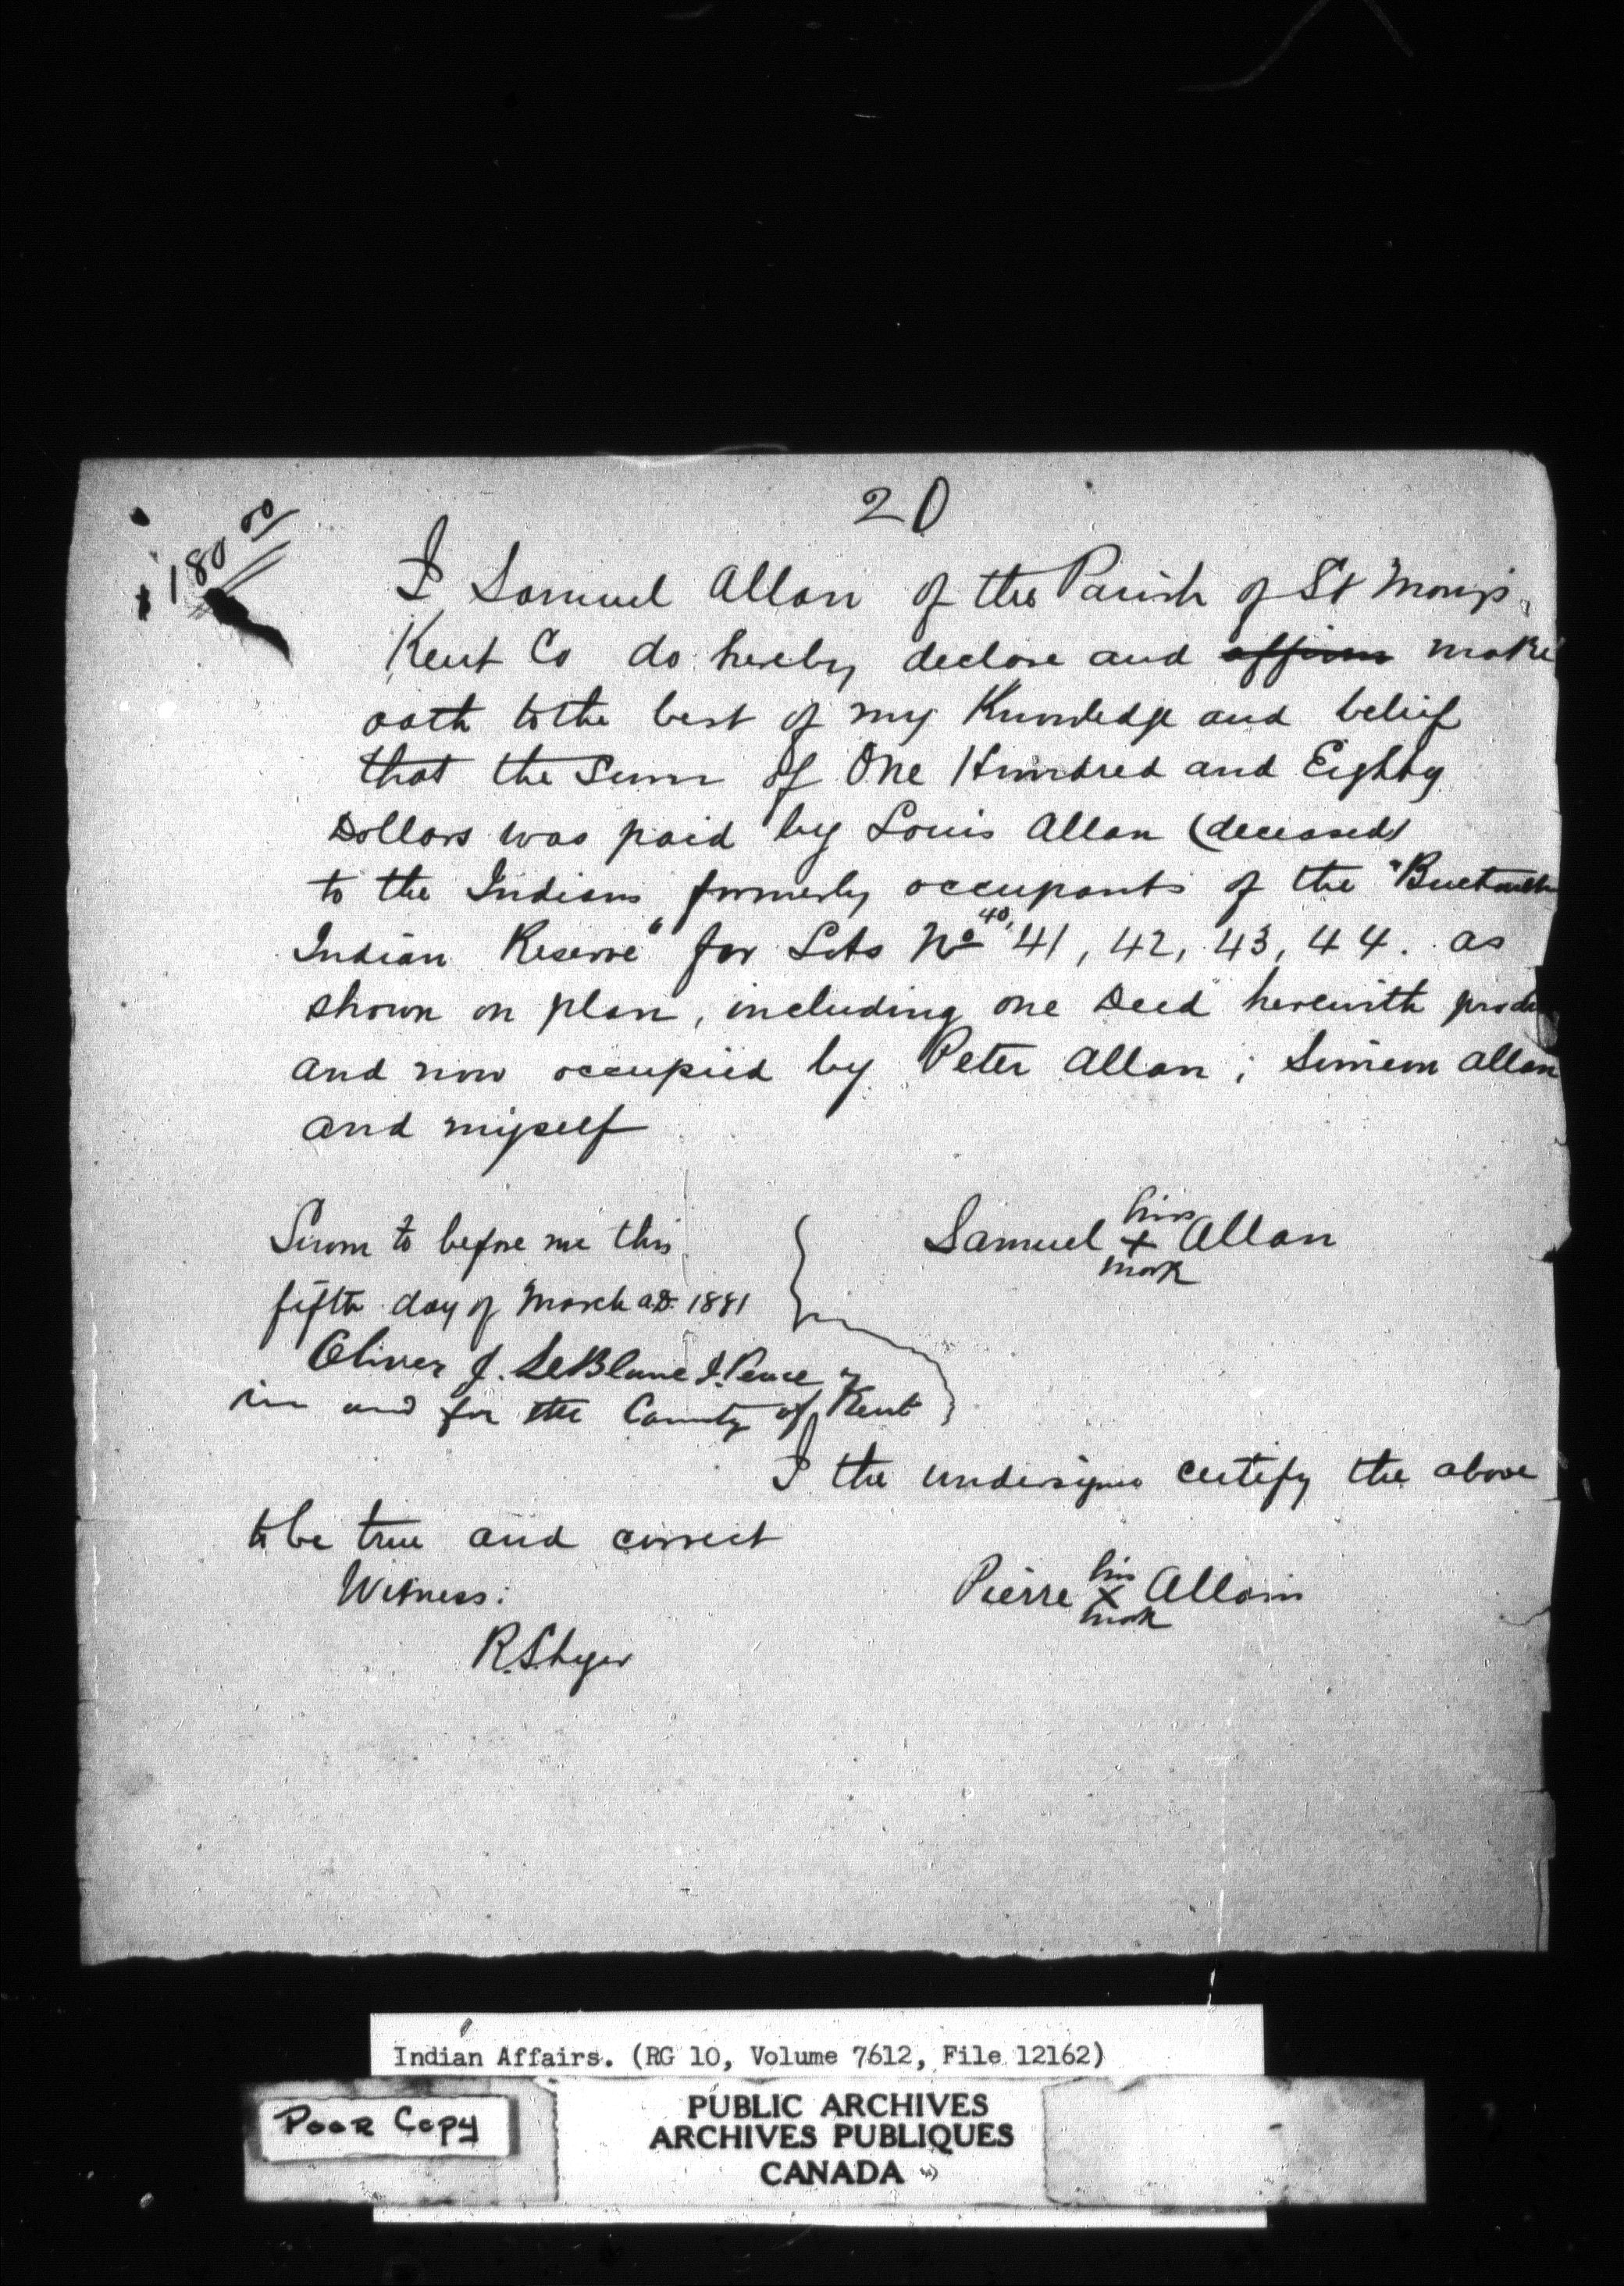 20
$180 00
I Samuel Allan of the Parish of St Mary's
Kent Co do hereby declare and affirm make
oath to the best of my Knowledge and belief
that the Sum of One Hundred and Eighty
Dollars was paid by Louis Allan (deceased)
to the Indians formerly occupants of the "Buctouche
Indian Reserve" for Lots No 40, 41, 42, 43, 44. as
shown on plan, including one Deed herewith
and now occupied by Peter Allan; Simeon Allan
and myself
Sworn to before me this
fifth day of March a.D. 1881
Samuel his X mark Allan
Oliver J. LeBlanc J. Peace
in and for the County of Kent
I the undersigned certify the above
to be true and correct
Witness:
Pierre his X mark Allain
Indian Affairs. (RG 10, Volume 7612, File 12162)
POOR COPY
PUBLIC ARCHIVES
ARCHIVES PUBLIQUES
CANADA